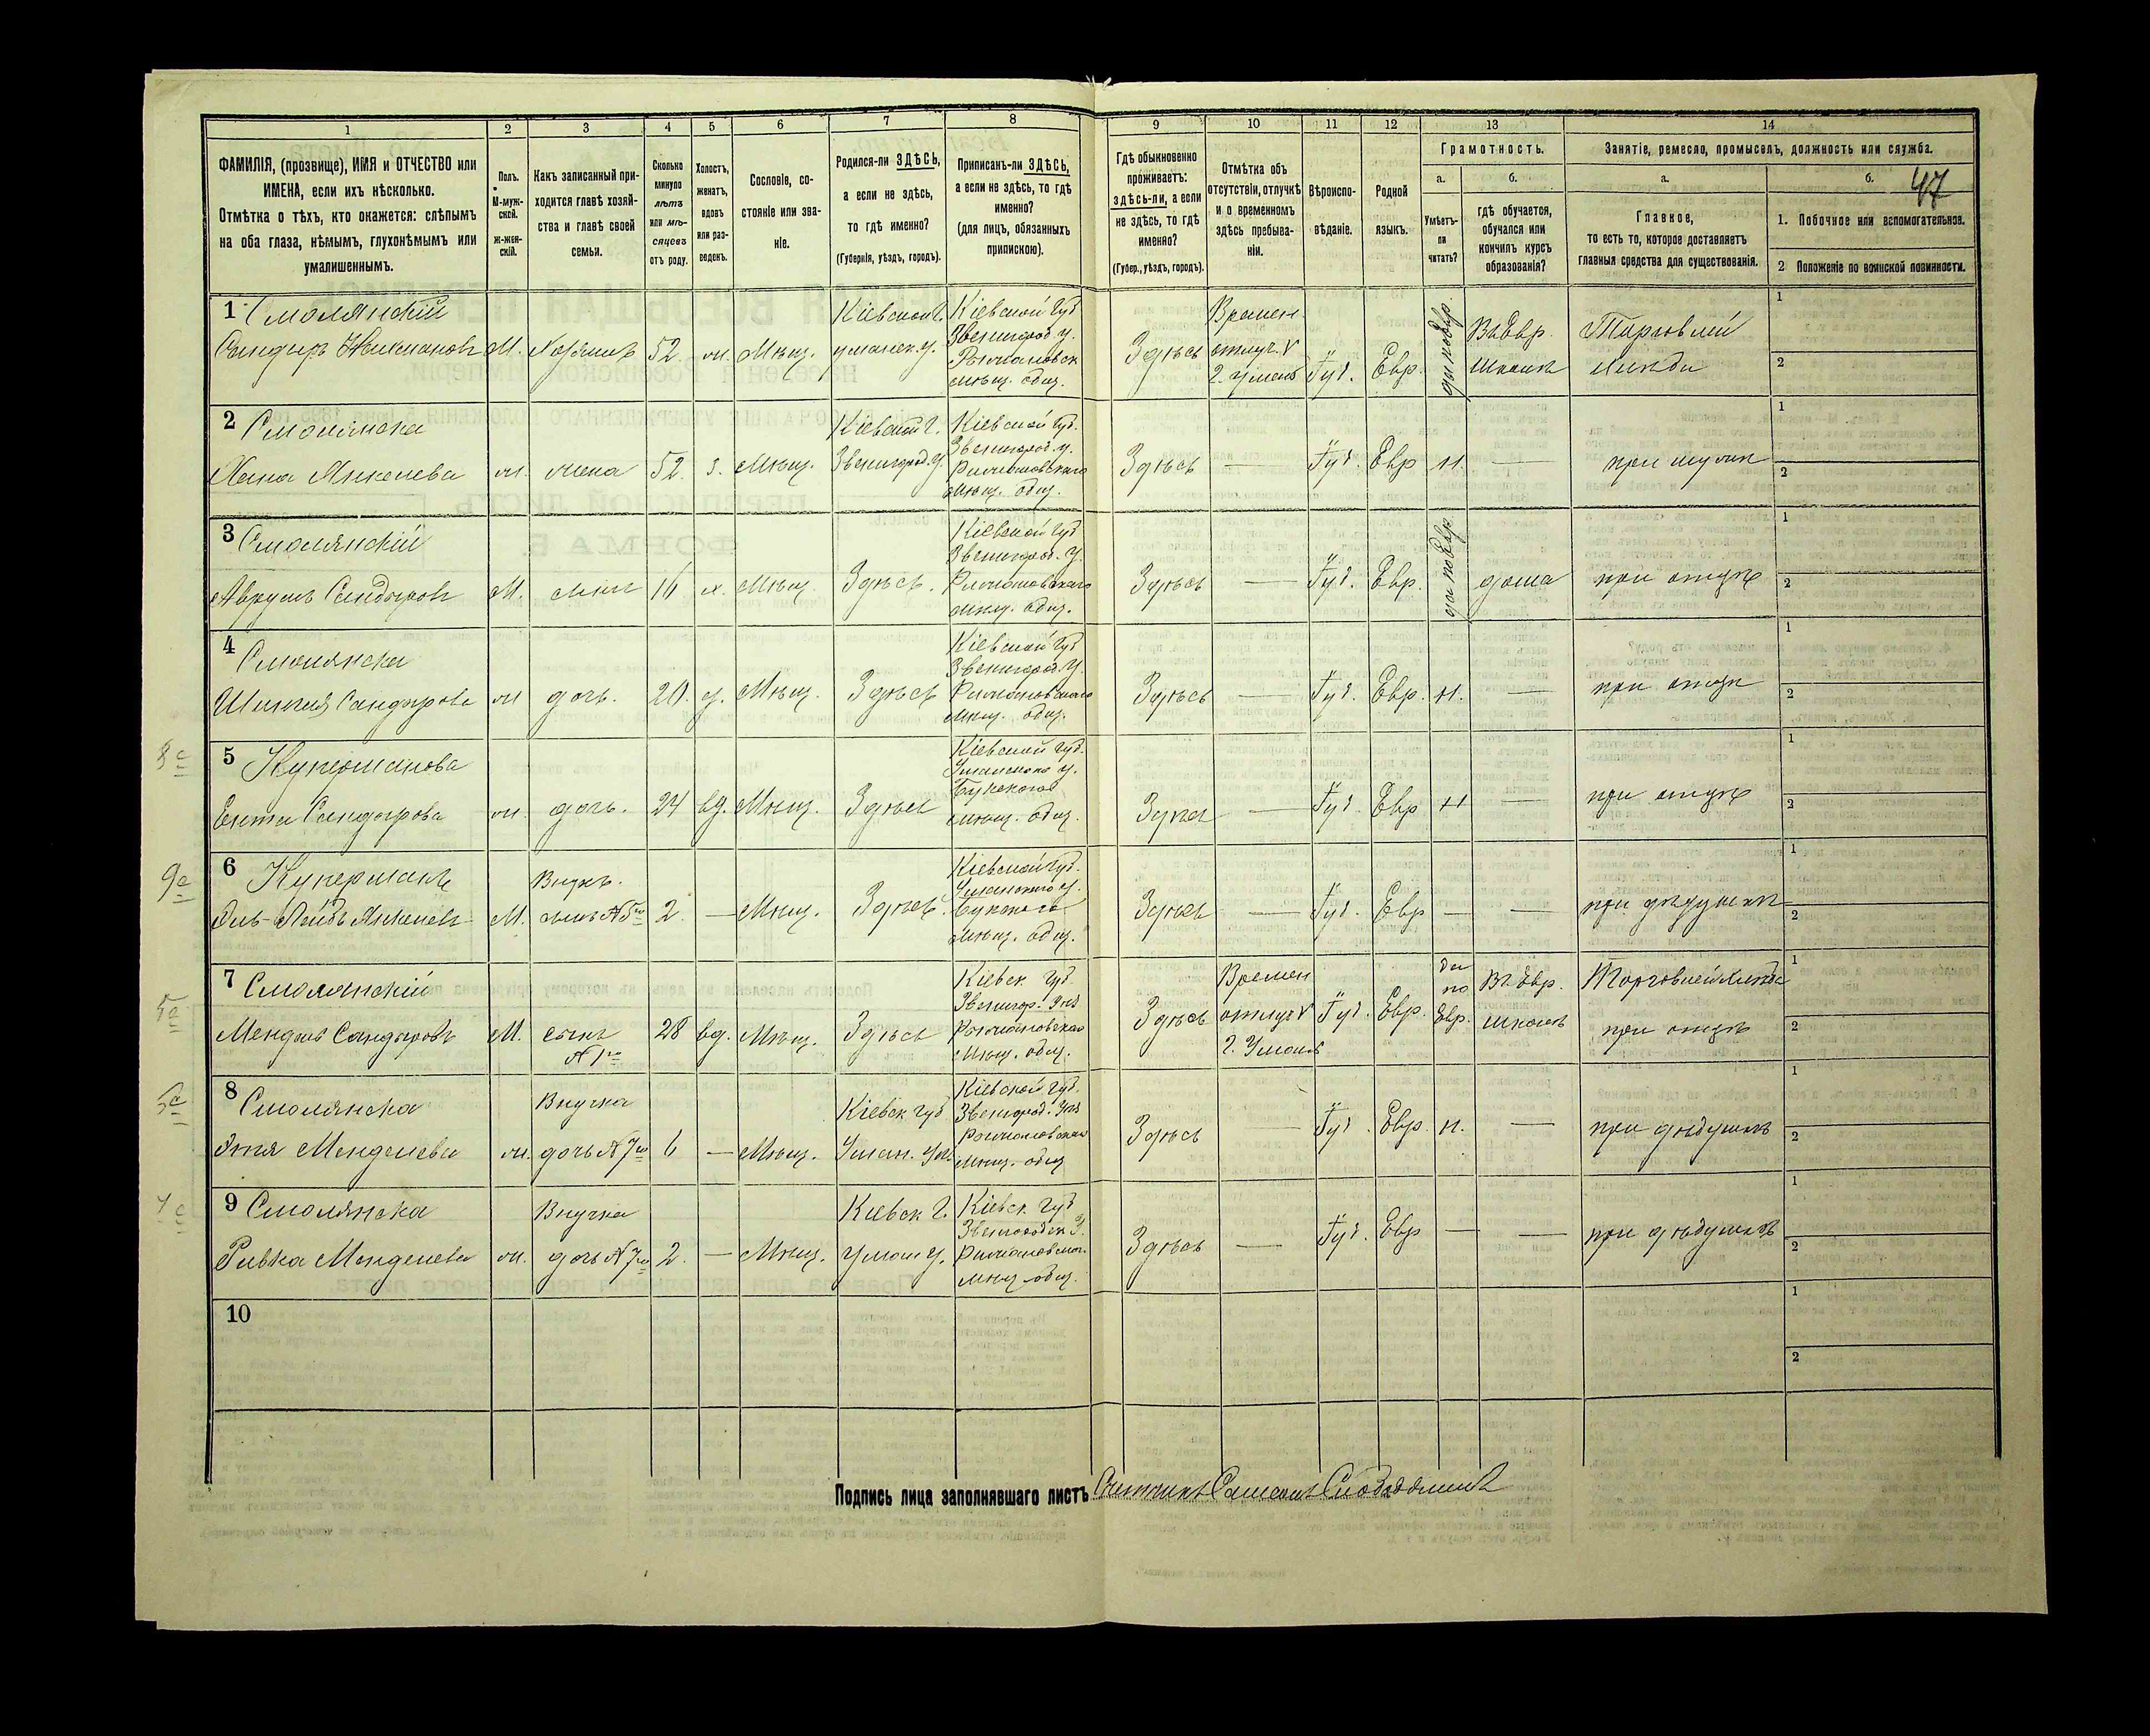 1 2 3 4 5 6 7 8 9 10 11 12 13 14
ФАМИЛІЯ, (прозвище), ИМЯ и ОТЧЕСТВО или
ИМЕНА, если ихъ нѣсколько.
Отмѣтка о тѣхъ, кто окажется: слѣпымъ
на оба глаза, нѣмымъ, глухонѣмымъ или
умалишеннымъ.
Полъ.
М-муж-
ской.
ж-жен-
скій.
Какъ записанный при-
ходится главѣ хозяй-
ства и главѣ своей
семьи.
Сколько
минуло
лѣтъ
или мѣ-
сяцевъ
отъ роду.
Холостъ,
женатъ,
вдовъ
или раз-
веденъ.
Сословіе, со-
стояніе или зва-
ніе.
Родился-ли ЗДѢСЬ,
а если не здѣсь,
то гдѣ именно?
(Губернія, уѣздъ, городъ).
Приписанъ-ли ЗДѢСЬ,
а если не здѣсь, то гдѣ
именно?
(для лицъ, обязанныхъ
припискою).
Гдѣ обыкновенно
проживаетъ:
здѣсь-ли, а если
не здѣсь, то гдѣ
именно?
(Губер., уѣздъ, городъ).
Отмѣтка объ
отсутствіи, отлучкѣ
и о временномъ
здѣсь пребыва-
ніи.
Вѣроиспо-
вѣданіе.
Родной
языкъ.
Грамотность.
а.
Умѣетъ-
ли
читать?
б.
гдѣ обучается,
обучался или
кончилъ курсъ
образованія?
Занятіе, ремесло, промыселъ, должность или служба.
а.
Главное,
то есть то, которое доставляетъ
главныя средства для существованія.
б.
47
1. Побочное или вспомогательное.
2 Положеніе по воинской повинности.
1 Смолянскій
Сандыръ
М. 52. Мѣщ.
Кіевской г.
уманск. у.
Кіевской губ
Звенигород у.
мѣщ. общ.
Здѣсь
Времен.
отлуч. в
г. Умань
Іуд. Евр.
да по Евр.
Въ Евр.
школѣ
1
2
2 Смолянска
Хана Янкелева
ж. жена 52. з. Мѣщ.
Кіевской г.
Звенигород. у.
Кіевской губ.
Звенигород. у.
мѣщ. общ.
Здѣсь — Іуд. Евр н. —
при мужѣ
1
2
3 Смолянскій
Аврумъ Сандыровъ
М. сынъ 16 х. Мѣщ. Здѣсь.
Кіевской губ
Звенигород. у.
мѣщ. общ.
Здѣсь — Іуд. Евр.
да по Евр.
дома
при отцѣ
1
2
4 Смолянска
Сандырова
ж дочь. 20. д. Мѣщ. Здѣсь
Кіевской губ
Звенигород. у.
мѣщ. общ.
Здѣсь — Іуд. Евр. н. —
при отцѣ
1
2
5 Куперманова
Ента Сандырова
ж. дочь. 24 вд. Мѣщ. Здѣсь
Кіевской губ.
Уманского у.
Букского
мѣщ. общ.
Здѣсь — Іуд. Евр н —
при отцѣ
1
2
6 Куперманъ
Янкелевъ
М.
Внукъ.
сынъ №5го
2. — Мѣщ. Здѣсь.
Кіевской губ.
Уманского у.
Букского
мѣщ. общ.
Здѣсь — Іуд. Евр — —
при дѣдушкѣ
1
2
7 Смолянскій
Мендель Сандыровъ
М. сынъ
№1го
28 вд. Мѣщ. Здѣсь
Кіевск губ.
Звенигор. уѣз
мѣщ. общ.
Здѣсь
Времен
отлуч. в
г. Умань
Іуд. Евр.
да
по
Евр.
Въ Евр.
школѣ
при отцѣ
1
2
8 Смолянска
Этя Менделева
ж.
Внучка
дочь №7го
6 — Мѣщ.
Кіевск губ
Уман. уѣз.
Кіевской губ.
Звенигород. уѣз
мѣщ. общ
Здѣсь — Іуд. Евр. н. —
при дѣдушкѣ
1
2
9 Смолянска
Ривка Менделева
ж.
Внучка
дочь №7го
2. — Мѣщ.
Кіевск г.
Уман у.
Кіевск губ
мѣщ общ.
Здѣсь — Іуд. Евр — —
при дѣдушкѣ
1
2
10
1
2
Подпись лица заполнявшаго листъ